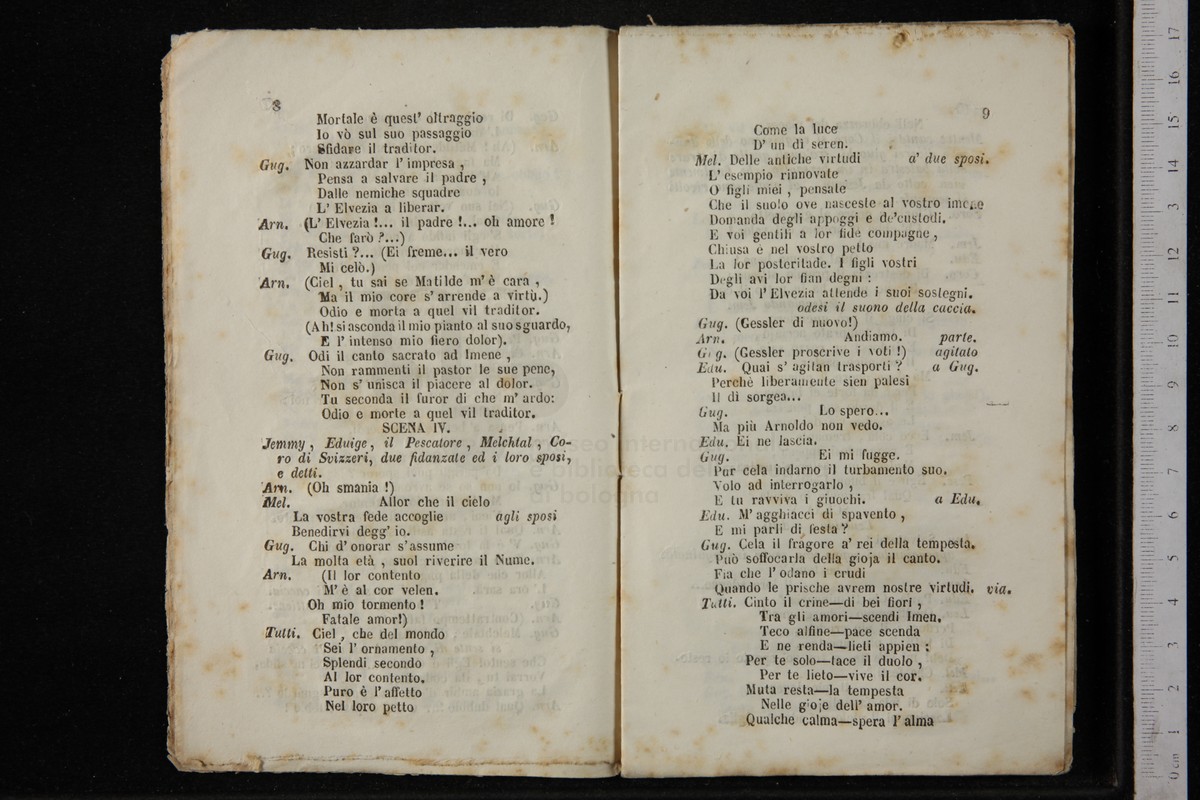 8
Mortale è quest' oltraggio
Io vò sul suo passaggio
Sfidare il traditor.
Gug. Non azzardar l' impresa ,
Pensa a salvare il padre ,
Dalle nemiche squadre
L' Elvezia a liberar.
Arn. (L' Elvezia !... il padre !... oh amore !
Che farò ?...)
Gug. Resisti ?... (Ei freme... il vero
Mi celò.)
Arn. (Ciel , tu sai se Matilde m' è cara ,
Ma il mio core s' arrende a virtù.)
Odio e morta a quel vil traditor.
(Ah! si asconda il mio pianto al suo sguardo,
E l' intenso mio fiero dolor).
Gug. Odi il canto sacrato ad Imene ,
Non rammenti il pastor le sue pene,
Non s' unisca il piacere al dolor.
Tu seconda il furor di che m' ardo:
Odio e morte a quel vil traditor.
SCENA IV.
Jemmy , Eduige, il Pescatore , Melchtal , Co-
ro di Svizzeri, due fidanzate ed i loro sposi,
e detti.
Arn. (Oh smania !)
Mel. Allor che il cielo
La vostra fede accoglie agli sposi
Benedirvi degg' io.
Gug. Chi d' onorar s' assume
La molta età , suol riverire il Nume.
Arn. (Il lor contento
M' è al cor velen.
Oh mio tormento !
Fatale amor!)
Tutti. Ciel , che del mondo
Sei l' ornamento ,
Splendi secondo
Al lor contento.
Puro è l' affetto
Nel loro petto
9
Come la luce
D' un dì seren.
Mel. Delle antiche virtudi a' due sposi.
L' esempio rinnovate
O figli miei , pensate
Che il suolo ove nasceste al vostro imene
Domanda degli appoggi e de' custodi.
E voi gentili a lor fide compagne ,
Chiusa è nel vostro petto
La lor posteritade. I figli vostri
Degli avi lor fian degni :
Da voi l' Elvezia attende i suoi sostegni.
odesi il suono della caccia.
Gug. (Gessler di nuovo!)
Arn. Andiamo. parte.
Gug. (Gessler proscrive i voti !) agitato
Edu. Quai s' agitan trasporti ? a Gug.
Perchè liberamente sien palesi
Il dì sorgea...
Gug. Lo spero...
Ma più Arnoldo non vedo.
Edu. Ei ne lascia.
Gug. Ei mi fugge.
Pur cela indarno il turbamento suo.
Volo ad interrogarlo ,
E tu ravviva i giuochi. a Edu.
Edu. M' agghiacci di spavento ,
E mi parli di festa ?
Gug. Cela il fragore a' rei della tempesta.
Può soffocarla della gioja il canto.
Fia che l' odano i crudi
Quando le prische avrem nostre virtudi. via.
Tutti. Cinto il crine—di bei fiori ,
Tra gli amori—scendi Imen,
Teco alfine—pace scenda
E ne renda—lieti appien :
Per te solo—tace il duolo ,
Per te lieto—vive il cor.
Muta resta—la tempesta
Nelle gioje dell' amor.
Qualche calma—spera l' alma